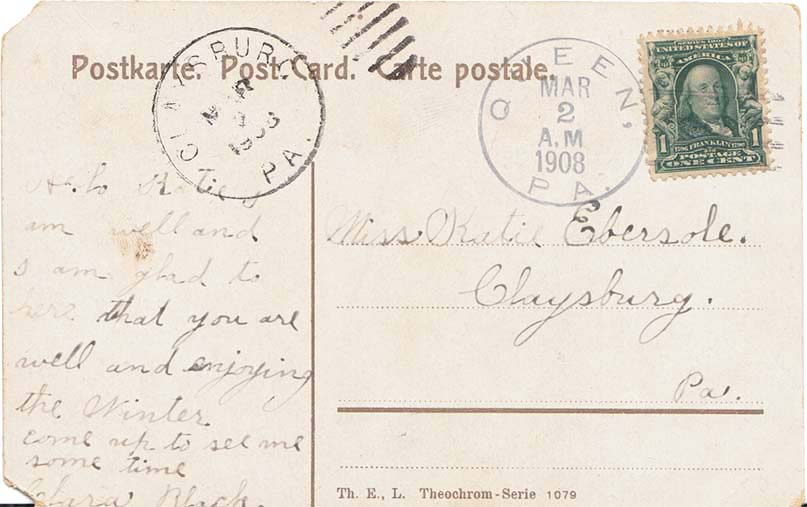 Postkarte. Post Card. Carte postale.
CLAYSBURG
MAR
1908
PA.
QUEEN,
MAR
2
A.M
1908
PA.
SERIES 1902
UNITED STATES OF
AMERICA
1 FRANKLIN 1
POSTAGE
ONE CENT
Hello Katie I
am well and
I am glad to
here that you are
well and enjoying
the Winter
come up to see me
some time
Clara Black.
Miss Katie Ebersole.
Claysburg.
Pa.
Th. E., L. Theochrom-Serie 1079